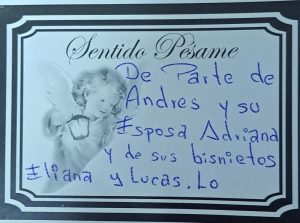 Sentido Pésame
De Parte de
Andres y su
Esposa Adriana
y de sus bisnietos
Eliana y Lucas. Lo